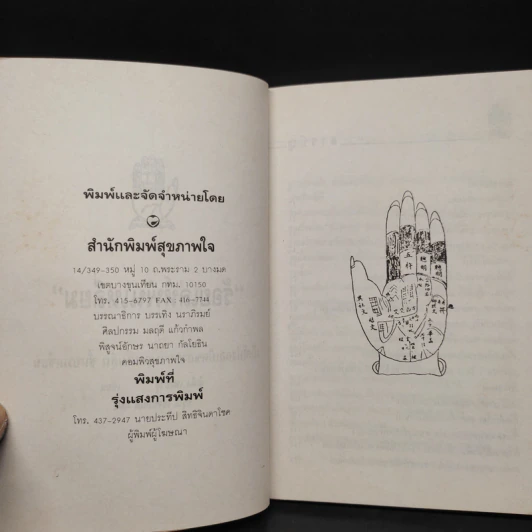 พิมพ์และจัดจำหน่ายโดย
สำนักพิมพ์สุขภาพใจ
14/349-350 หมู่ 10 ถ.พระราม 2 บางมด
เขตบางขุนเทียน กทม. 10150
โทร. 415-6797 FAX: 416-7744
บรรณาธิการ บรรเทิง นราภิรมย์
ศิลปกรรม มลฤดี แก้วกำพล
พิสูจน์อักษร นาถยา กัลโยธิน
คอมพิวสุขภาพใจ
พิมพ์ที่
รุ่งแสงการพิมพ์
โทร. 437-2947 นายประทีป สิทธิจินดาโชค
ผู้พิมพ์ผู้โฆษณา